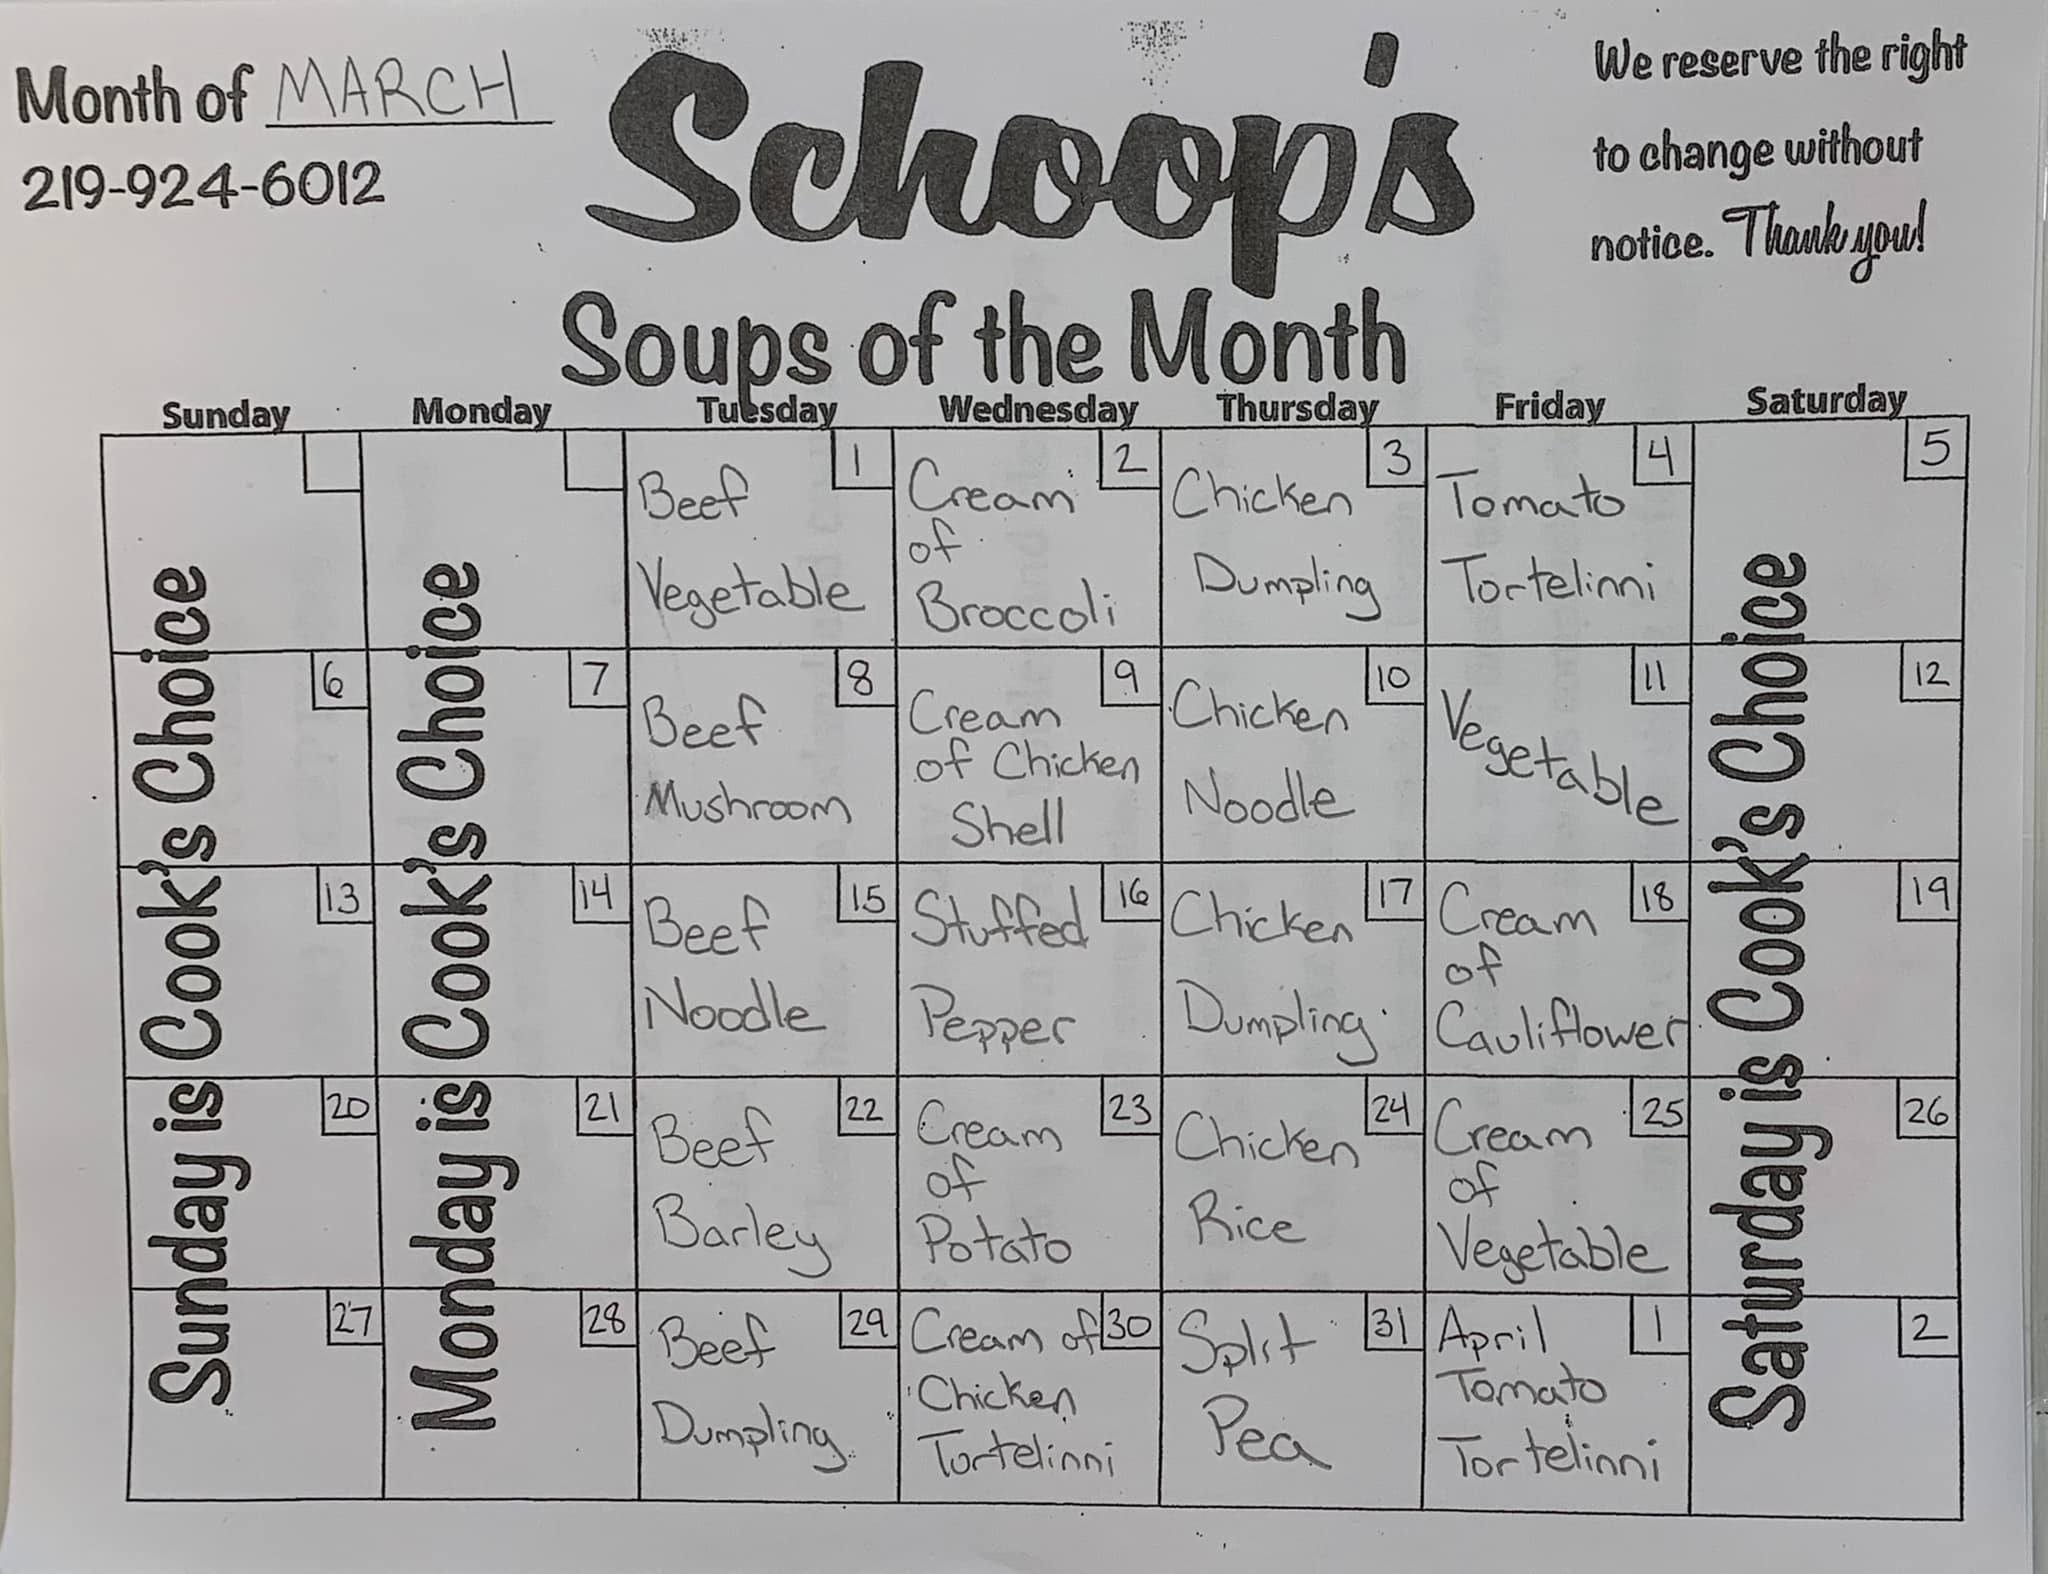 Month of MARCH
219-924-6012
Schoop's
We reserve the right
to change without
notice. Thank you!
Soups of the Month
Sunday Monday Tuesday Wednesday Thursday Friday Saturday
Sunday is Cook's Choice
Monday is Cook's Choice
1
Beef
Vegetable
2
Cream
of
Broccoli
3
Chicken
Dumpling
4
Tomato
Tortelinni
5
Saturday is Cook's Choice
6
7
8
Beef
Mushroom
9
Cream
of Chicken
Shell
10
Chicken
Noodle
11
Vegetable
12
13
14
15
Beef
Noodle
16
Stuffed
Pepper
17
Chicken
Dumpling
18
Cream
of
Cauliflower
19
20
21
22
Beef
Barley
23
Cream
of
Potato
24
Chicken
Rice
25
Cream
of
Vegetable
26
27
28
29
Beef
Dumpling
30
Cream of
Chicken
Tortelinni
31
Split
Pea
1
April
Tomato
Tortelinni
2